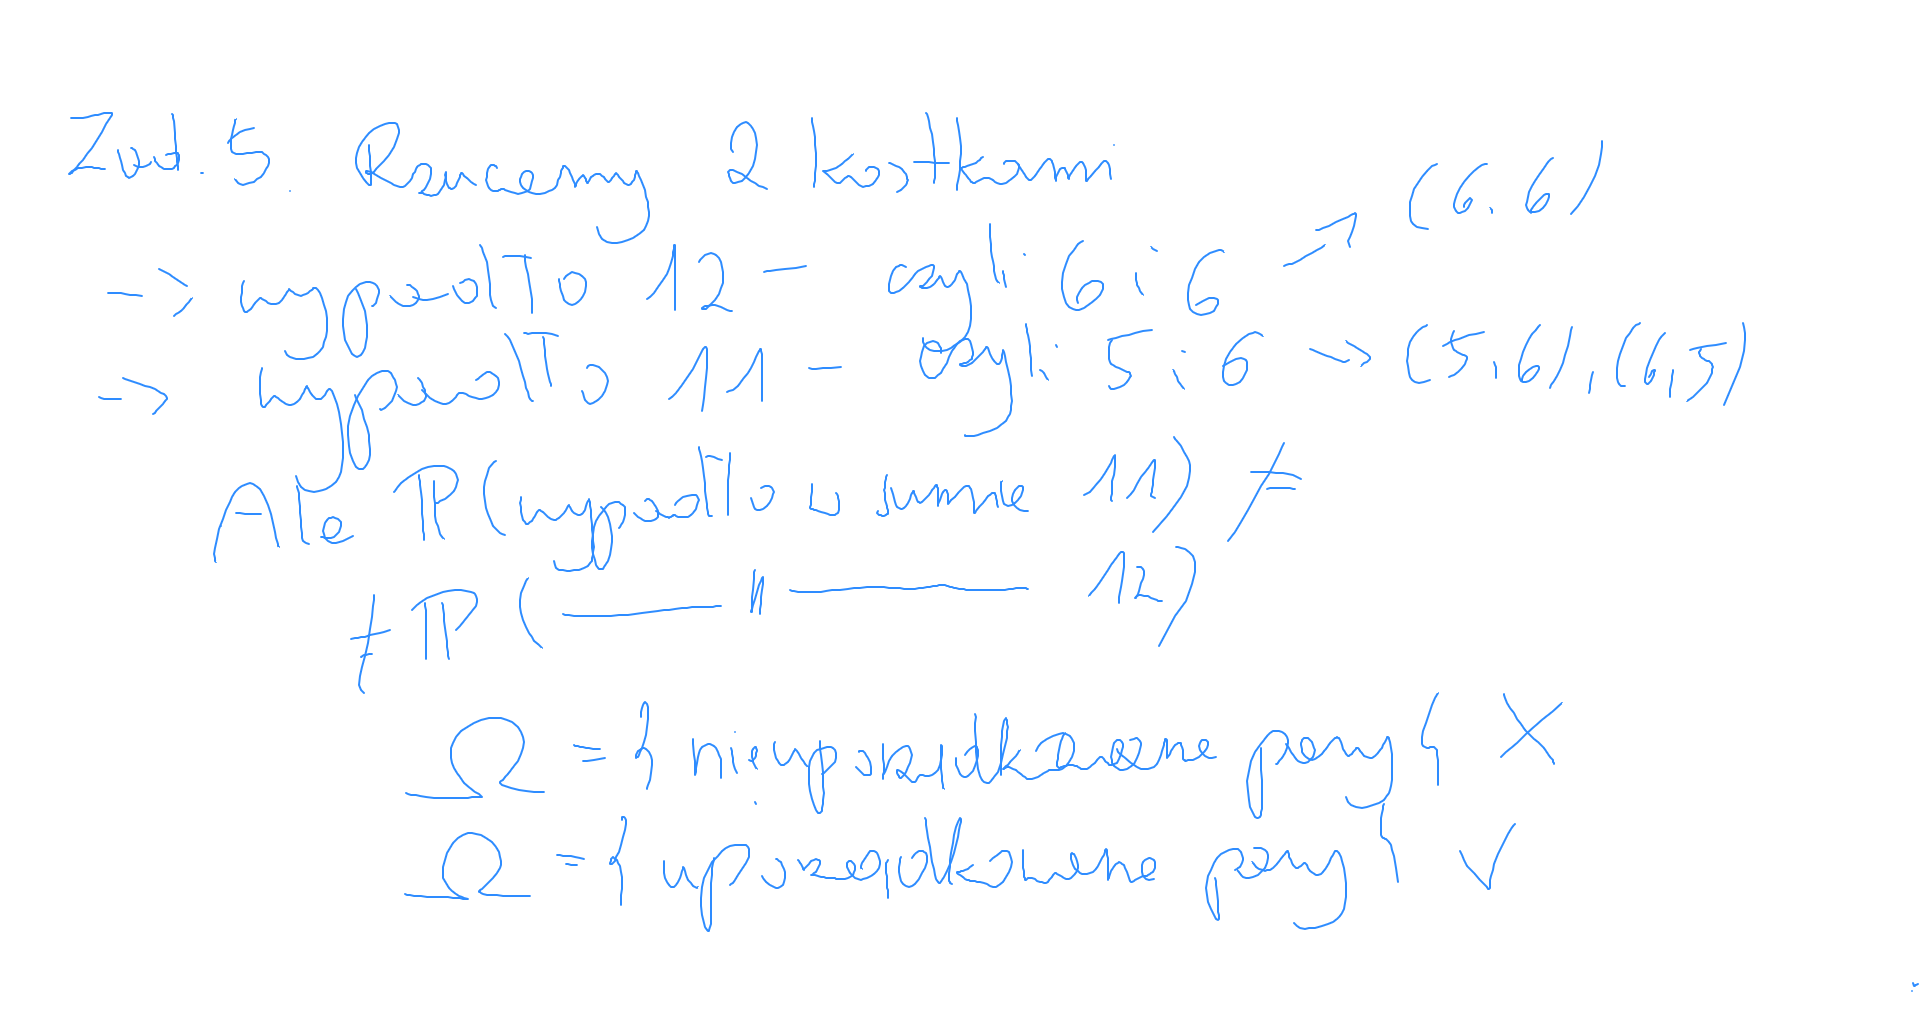 Zad. 5. Rzucamy 2 kostkami
-> wypadło 12 - czyli 6 i 6 -> (6,6)
-> wypadło 11 - czyli 5 i 6 -> (5,6), (6,5)
Ale ℙ(wypadło w sumie 11) ≠
≠ ℙ( —— 〃 —— 12)
Ω = { nieuporządkowane pary } ✗
Ω = { uporządkowane pary } ✓